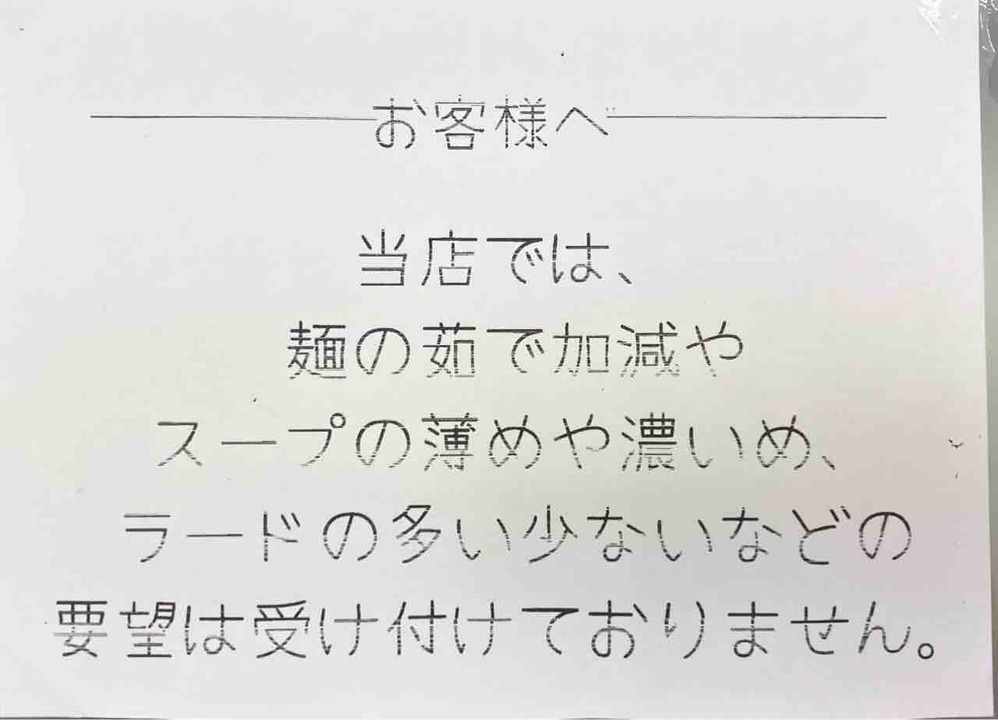 お客様へ
当店では、
麺の茹で加減や
スープの薄めや濃いめ、
ラードの多い少ないなどの
要望は受け付けておりません。